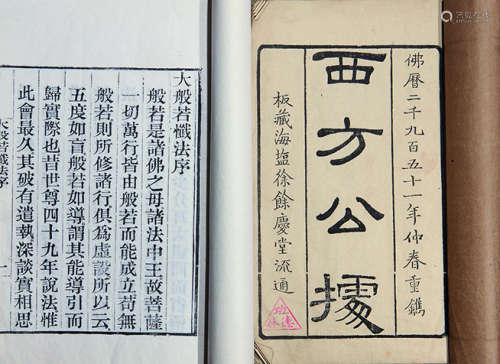 佛曆二千九百五十一年仲春重鐫
西方公據
板藏海塩徐餘慶堂流通
大般若懺法序
般若是諸佛之母諸法中王故菩薩
一切萬行皆由般若而能成立苟無
般若則所修諸行俱爲虛設所以云
五度如盲般若如導謂其能導引而
歸實際也昔世尊四十九年說法惟
此會最久其破有遣執深談實相思
大般若懺法序
一